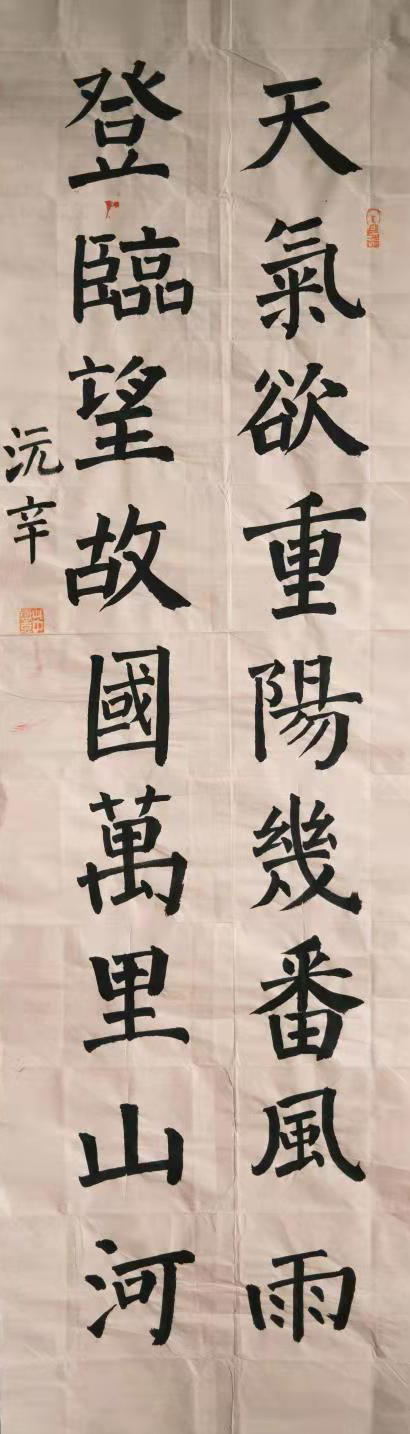 天氣欲重陽幾番風雨
登臨望故國萬里山河
沅辛